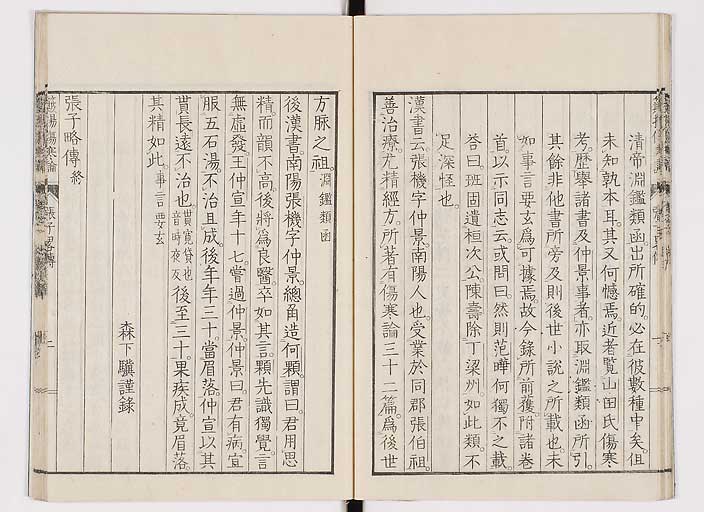 清帝淵鑑類函出所確的必在彼數種中矣但
未知孰本耳其又何憾焉近者覧山田氏傷寒
考歴舉諸書及仲景事者亦取淵鑑類函所引
其餘非他書所旁及則後世小説之所載也未
如事言要玄爲可據焉故今錄所前獲附諸巻
首以示同志云或問曰然則范曄何獨不之載
答曰班固遺桓次公陳壽除丁梁州如此類不
足深怪也
漢書云張機字仲景南陽人也受業於同郡張伯祖
善治療尤精經方所著有傷寒論三十二篇爲後世
方脉之祖淵鑑類函
後漢書南陽張機字仲景總角造何顆謂曰君用思
精而韻不高後將爲良醫卒如其言顆先識獨覺言
無虛發王仲宣年十七嘗過仲景仲景曰君有病宜
服五石湯不治且成後年年三十當眉落仲宣以其
貰長遠不治也貰寛貸也音時夜反後至三十果疾成竟眉落
其精如此事言要玄
森下驥謹錄
張子略傳終
張子略傳